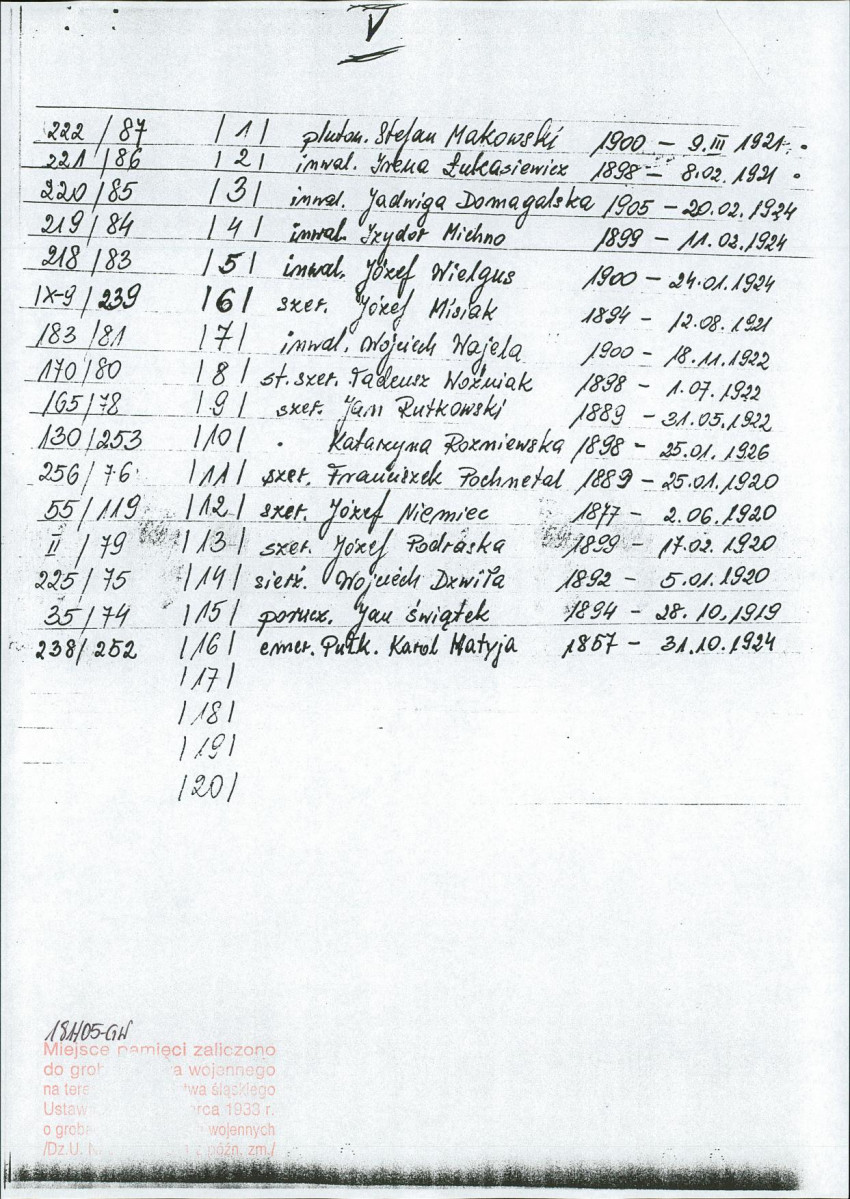 V
222 / 87 |1| pluton. Stefan Makowski 1900 – 9.III 1921.
221 / 86 |2| inwal. Irena Łukasiewicz 1898 – 8.02.1921
220/85 |3| inwal. Jadwiga Domagalska 1905 – 20.02.1924
219/84 |4| inwal. Izydor Michno 1899 – 11.02.1924
218/83 |5| inwal. Józef Wielgus 1900 – 24.01.1924
IX-9/239 |6| szer. Józef Misiak 1894 – 12.08.1921
183/81 |7| inwal. Wojciech Wajela 1900 – 18.11.1922
170/80 |8| st. szer. Tadeusz Woźniak 1898 – 1.07.1922
165/78 |9| szer. Jan Rutkowski 1889 – 31.05.1922
130/253 |10| Katarzyna Rozniewska 1898 – 25.01.1926
256/76 |11| szer. Franciszek Pochnetal 1889 – 25.01.1920
55/119 |12| szer. Józef Niemiec 1877 – 2.06.1920
II / 79 |13| szer. Józef Podraska 1899 – 17.02.1920
225/75 |14| sierż. Wojciech Dzwiła 1892 – 5.01.1920
35/74 |15| porucz. Jan Świątek 1894 – 28.10.1919
238/252 |16| emer. Pułk. Karol Matyja 1857 – 31.10.1924
|17|
|18|
|19|
|20|
181/05-GW
Miejsce pamięci zaliczono
do a wojennego
na twa śląskiego
Ustaw 1933 r.
o wojennych
/Dz.U. późn. zm./